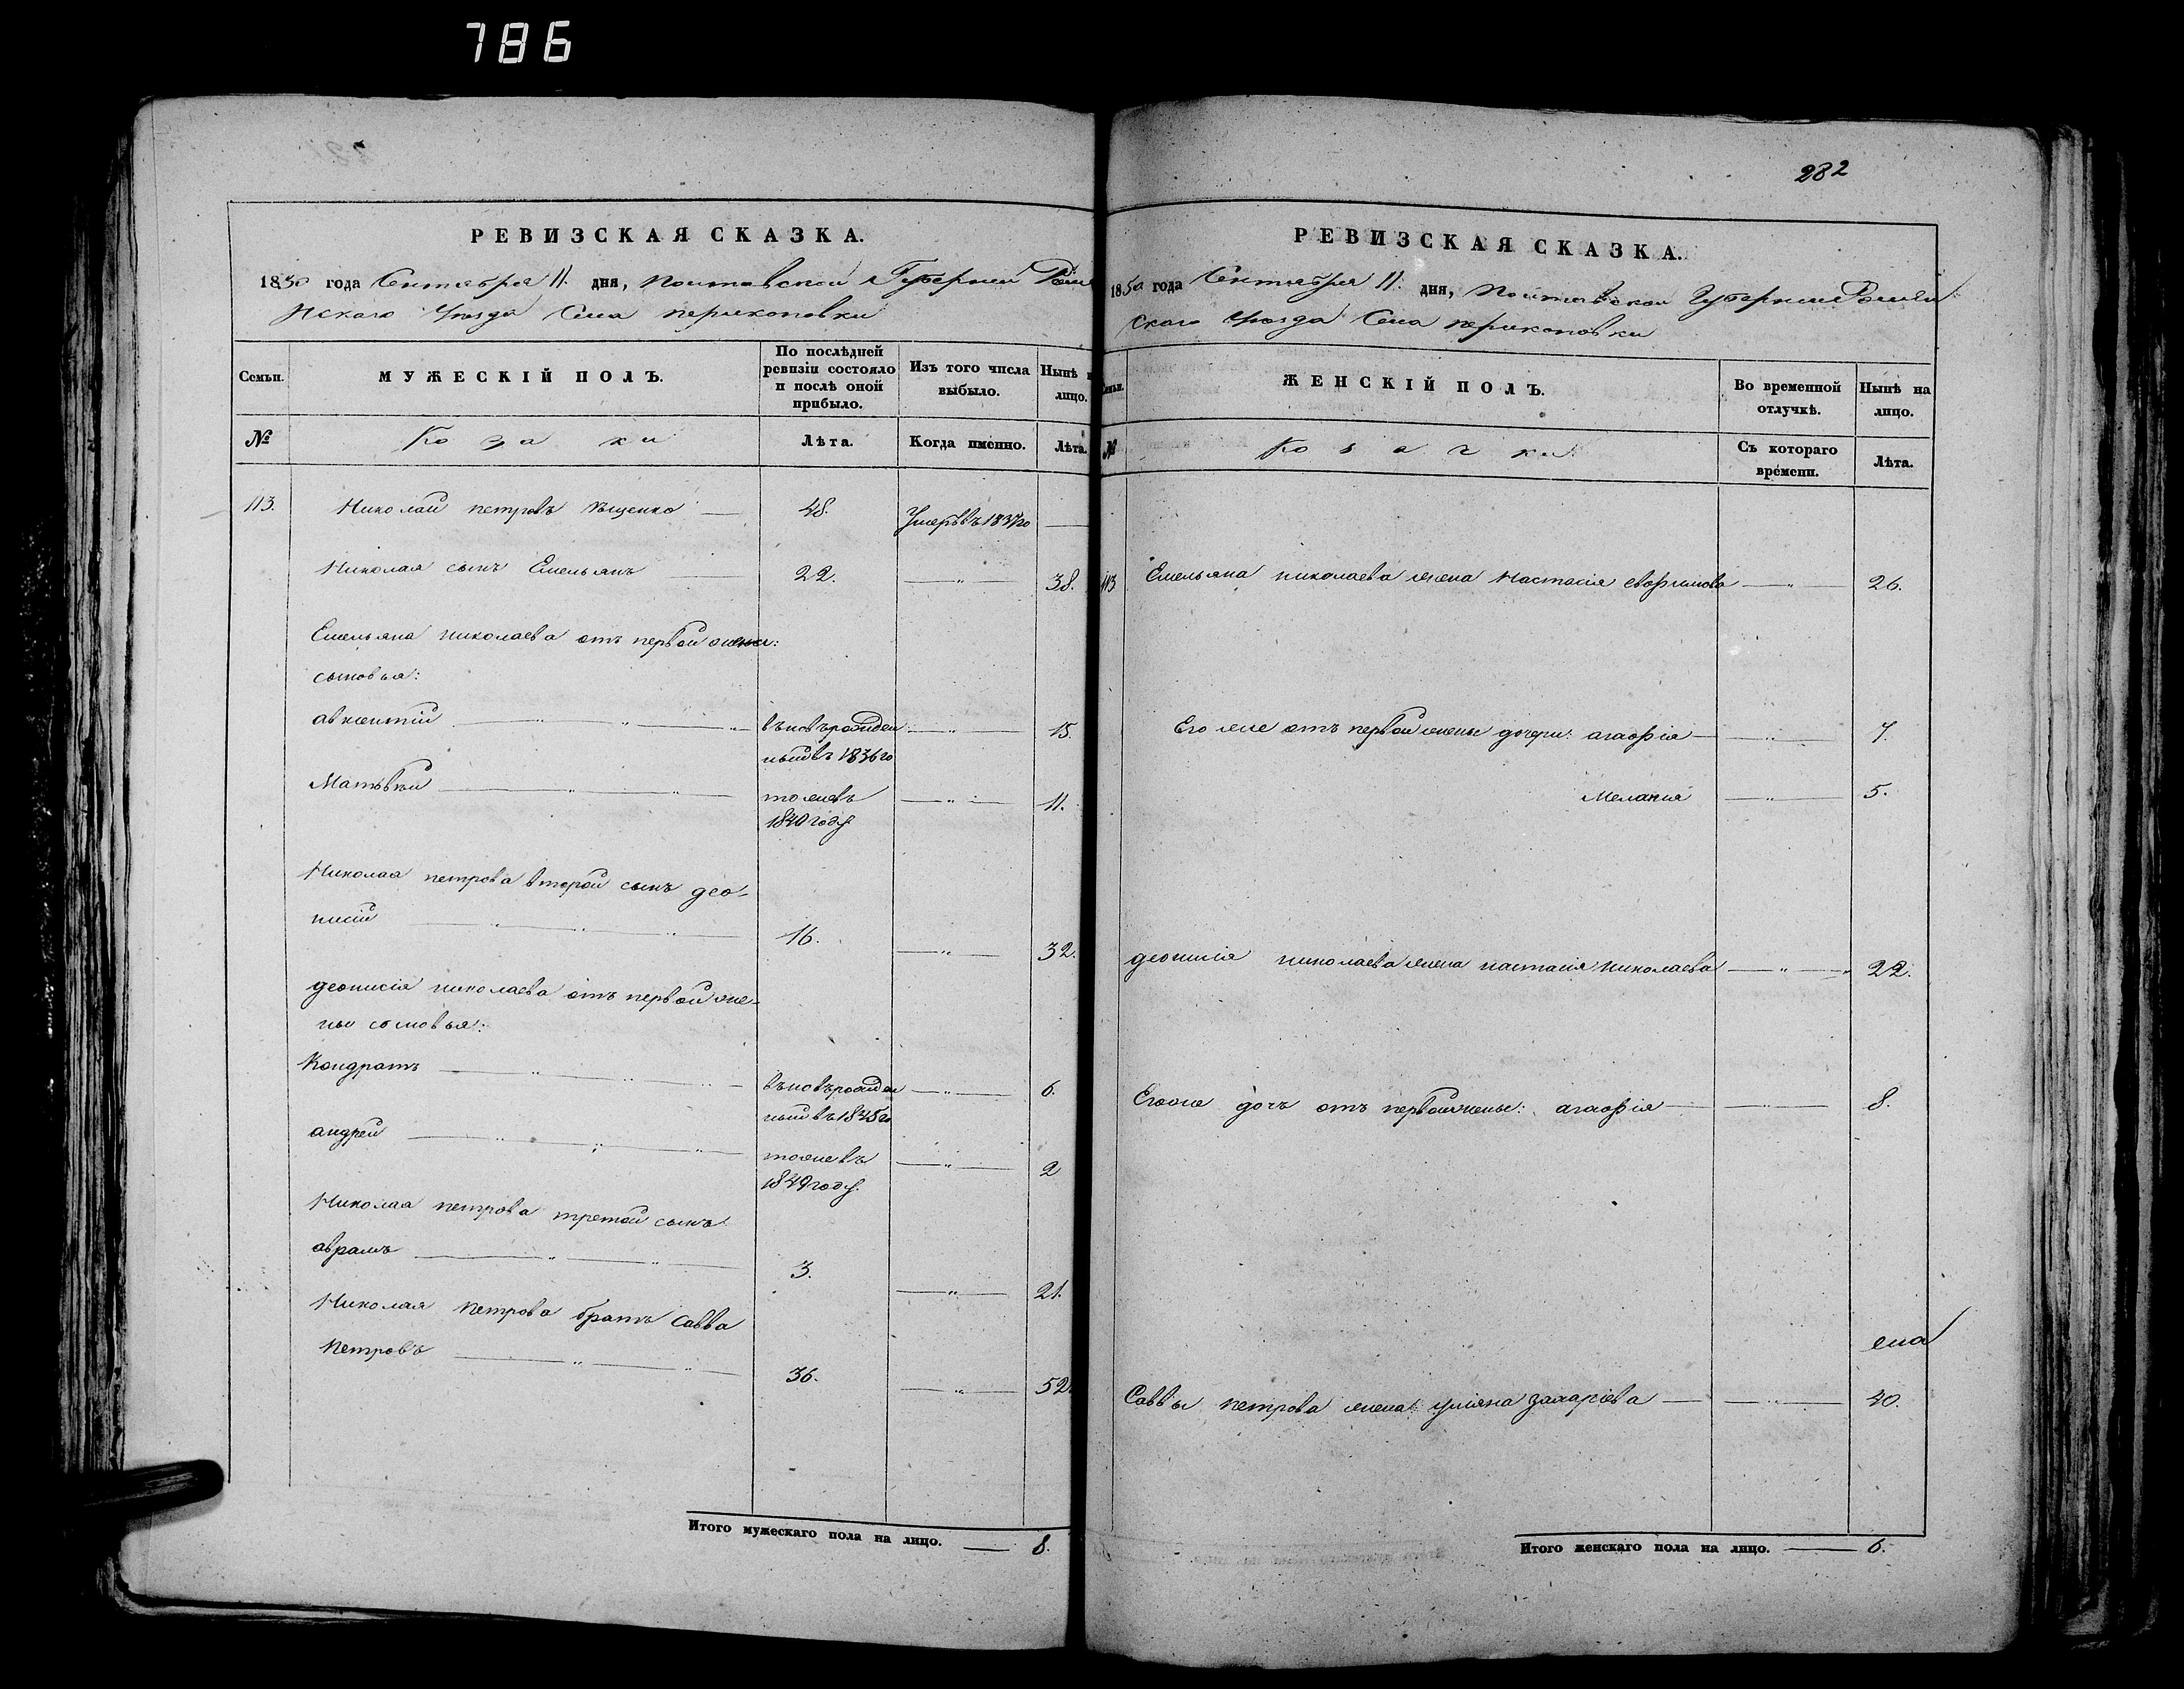 786
РЕВИЗСКАЯ СКАЗКА.
1850 года Сентября 11. дня, Полтавской Губернии Роме
нскаго Уѣзда Села перекоповки
Семьи. МУЖЕСКІЙ ПОЛЪ. По послѣдней ревизіи состояло и послѣ оной прибыло. Изъ того числа выбыло. Нынѣ на лицо.
№ Козаки Лѣта. Когда именно. Лѣта.
113. Николай петровъ 48. Умеръ въ 1837го
Николая сынъ Емельянъ 22. 38.
Емельяна николаева отъ первой жены:
сыновья:
авксентій вновърожден 15.
ный въ 1836го
Матвѣй тоже въ 11.
1840 году
Николая петрова второй сынъ део-
нисій 16. 32.
деонисія николаева отъ первой же-
ны сыновья:
Кондратъ вновърожден 6.
ный въ 1845го
андрей тоже въ 2
1849 году.
Николая петрова третой сынъ
аврамъ 3. 21.
Николая петрова братъ Савва
петровъ 36. 52.
Итого мужескаго пола на лицо. 8.
282
РЕВИЗСКАЯ СКАЗКА.
1850 года Сентября 11. дня, Полтавской Губернии Ромен
скаго Уѣзда Села перекоповки
Семьи. ЖЕНСКІЙ ПОЛЪ. Во временной отлучкѣ. Нынѣ на лицо.
№ Козачки. Съ котораго времени. Лѣта.
113 Емельяна николаева жена Настасія евфимова 26.
Его же отъ первой жены дочери: агафія 7.
Меланія 5.
деонисія николаева жена настасія николаева 22.
Егоже дочъ отъ первой жены: агафія 8.
Саввы петрова жена уліяна захаріева 40.
Итого женскаго пола на лицо. 6.